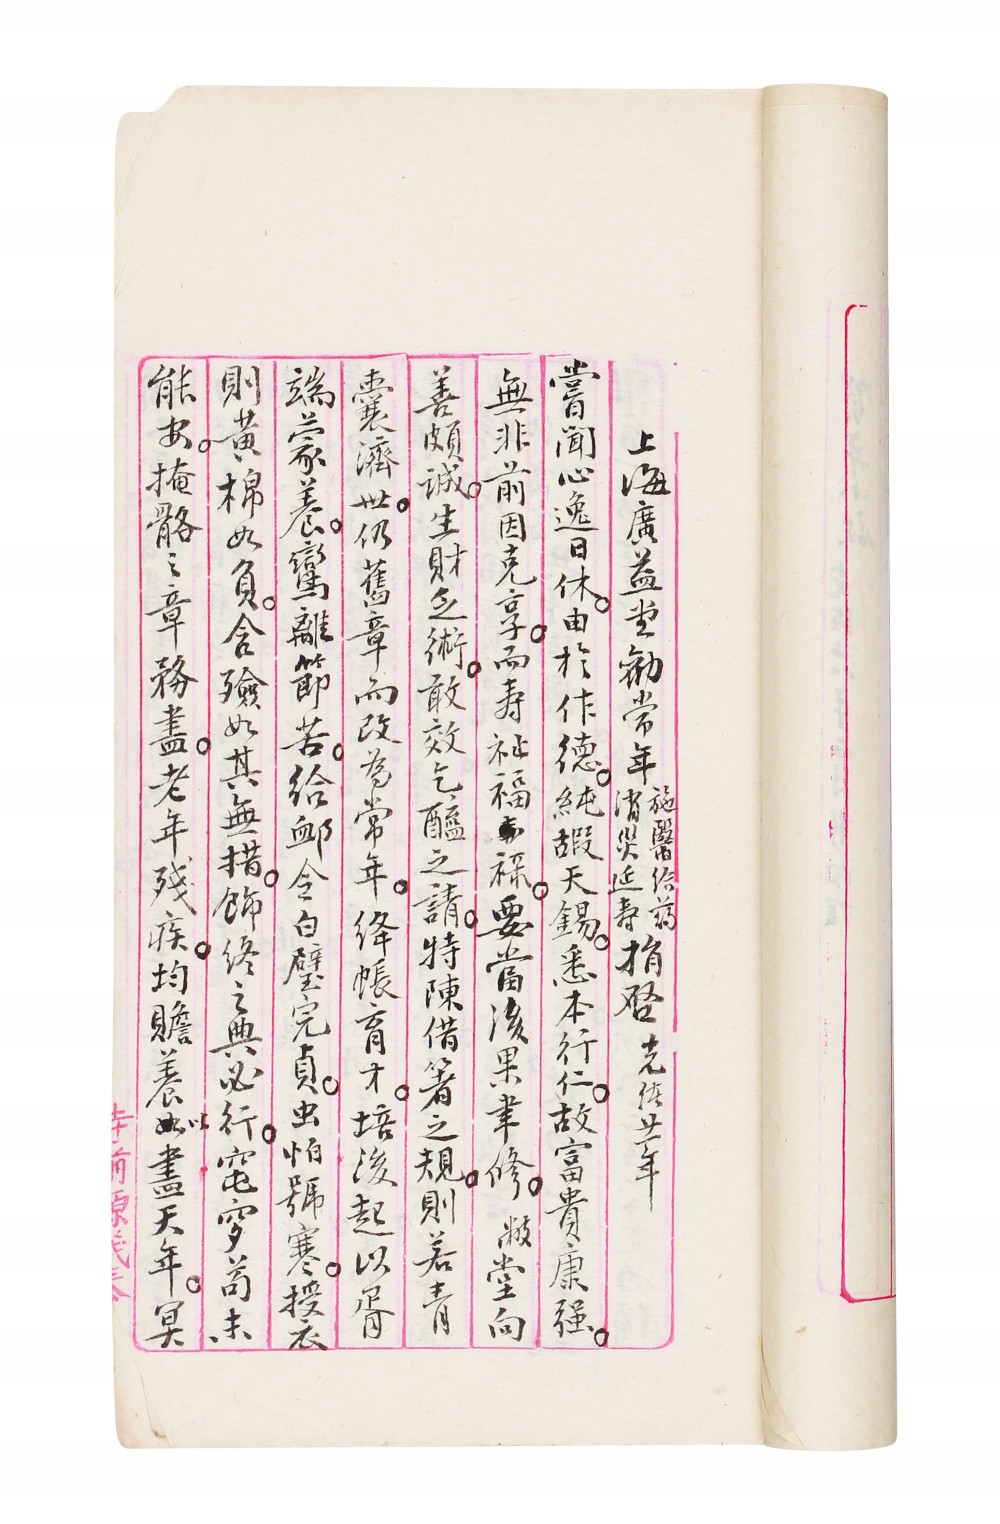 上海廣益堂勸常年施醫給藥消災延壽捐啓 光緒廿年
嘗聞心逸日休。由於作德。純嘏天錫。悉本行仁。故富貴康强。
無非前因克享。而壽祉福祿。要當後果聿修。敝堂向
善頗誠。生財乏術。敢效乞醯之請。特陳借箸之規。則若青
囊濟世。仍舊章而改為常年。絳帳育才。培後起以胥
端蒙養。鸞離節苦。給卹令白璧完貞。虫怕號寒。授衣
則黃棉如負。含殮如其無措。飾終之典必行。窀穸苟未
能安。掩骼之章務盡。老年殘疾。均贍養以盡天年。冥